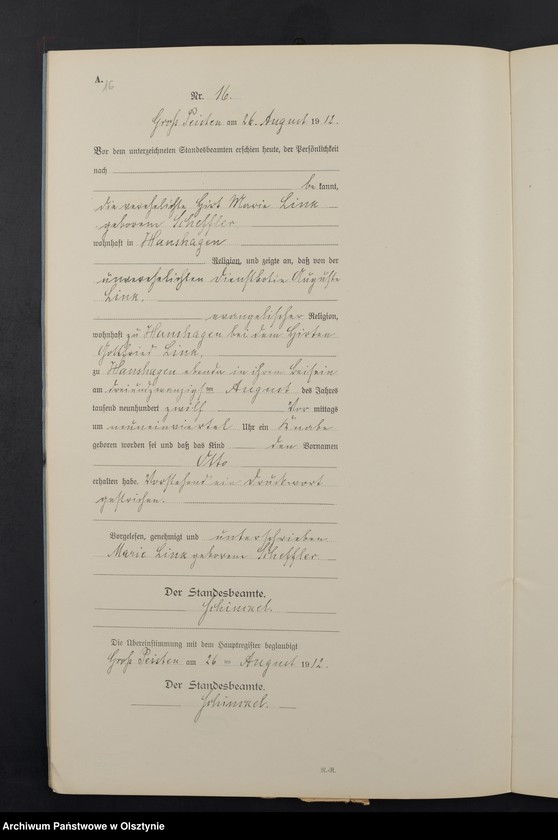 A.
16
Nr. 16.
Groß Peisten am 26. August 1912.
Vor dem unterzeichneten Standesbeamten erschien heute, der Persönlichkeit
nach
be kannt,
die verehelichte Hirt Marie Link
geborene Scheffler
wohnhaft in Hanshagen
Religion, und zeigte an, daß von der
unverehelichten Dienstbotin Auguste
Link,
evangelischer Religion,
wohnhaft zu Hanshagen bei dem Hirten
Gottfried Link,
zu Hanshagen ebenda in ihrem Beisein
am dreiundzwanzigsten August des Jahres
tausend neunhundert zwölf Vor mittags
um neuneinviertel Uhr ein Knabe
geboren worden sei und daß das Kind den Vornamen
Otto
erhalten habe. Vorstehend ein Druckwort
gestrichen.
Vorgelesen, genehmigt und unterschrieben
Marie Link geborene Scheffler
Der Standesbeamte.
Die Übereinstimmung mit dem Hauptregister beglaubigt
Groß Peisten am 26 ten August 1912.
Der Standesbeamte.
Archiwum Państwowe w Olsztynie